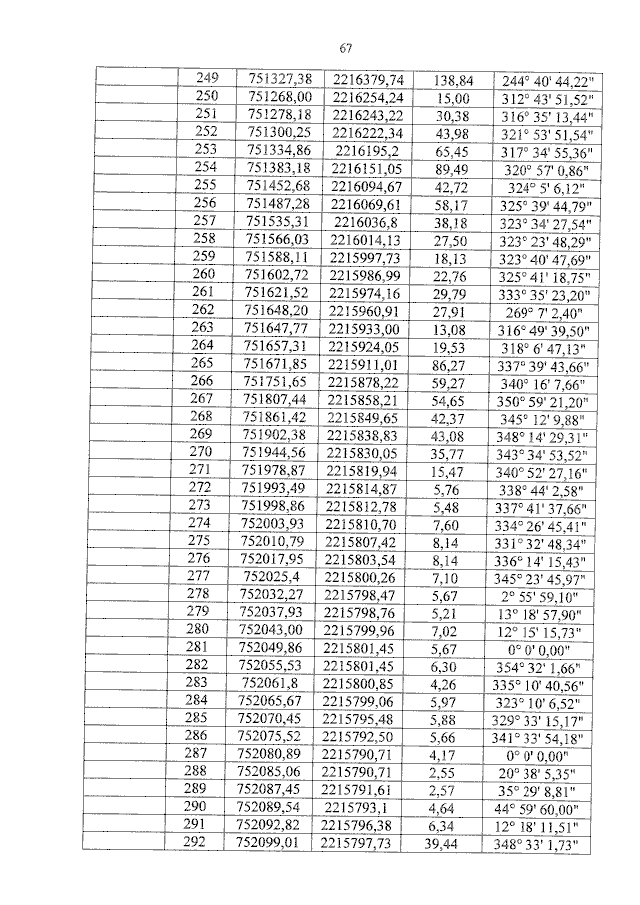 67
249 751327,38 2216379,74 138,84 244° 40' 44,22"
250 751268,00 2216254,24 15,00 312° 43' 51,52"
251 751278,18 2216243,22 30,38 316° 35' 13,44"
252 751300,25 2216222,34 43,98 321° 53' 51,54"
253 751334,86 2216195,2 65,45 317° 34' 55,36"
254 751383,18 2216151,05 89,49 320° 57' 0,86"
255 751452,68 2216094,67 42,72 324° 5' 6,12"
256 751487,28 2216069,61 58,17 325° 39' 44,79"
257 751535,31 2216036,8 38,18 323° 34' 27,54"
258 751566,03 2216014,13 27,50 323° 23' 48,29"
259 751588,11 2215997,73 18,13 323° 40' 47,69"
260 751602,72 2215986,99 22,76 325° 41' 18,75"
261 751621,52 2215974,16 29,79 333° 35' 23,20"
262 751648,20 2215960,91 27,91 269° 7' 2,40"
263 751647,77 2215933,00 13,08 316° 49' 39,50"
264 751657,31 2215924,05 19,53 318° 6' 47,13"
265 751671,85 2215911,01 86,27 337° 39' 43,66"
266 751751,65 2215878,22 59,27 340° 16' 7,66"
267 751807,44 2215858,21 54,65 350° 59' 21,20"
268 751861,42 2215849,65 42,37 345° 12' 9,88"
269 751902,38 2215838,83 43,08 348° 14' 29,31"
270 751944,56 2215830,05 35,77 343° 34' 53,52"
271 751978,87 2215819,94 15,47 340° 52' 27,16"
272 751993,49 2215814,87 5,76 338° 44' 2,58"
273 751998,86 2215812,78 5,48 337° 41' 37,66"
274 752003,93 2215810,70 7,60 334° 26' 45,41"
275 752010,79 2215807,42 8,14 331° 32' 48,34"
276 752017,95 2215803,54 8,14 336° 14' 15,43"
277 752025,4 2215800,26 7,10 345° 23' 45,97"
278 752032,27 2215798,47 5,67 2° 55' 59,10"
279 752037,93 2215798,76 5,21 13° 18' 57,90"
280 752043,00 2215799,96 7,02 12° 15' 15,73"
281 752049,86 2215801,45 5,67 0° 0' 0,00"
282 752055,53 2215801,45 6,30 354° 32' 1,66"
283 752061,8 2215800,85 4,26 335° 10' 40,56"
284 752065,67 2215799,06 5,97 323° 10' 6,52"
285 752070,45 2215795,48 5,88 329° 33' 15,17"
286 752075,52 2215792,50 5,66 341° 33' 54,18"
287 752080,89 2215790,71 4,17 0° 0' 0,00"
288 752085,06 2215790,71 2,55 20° 38' 5,35"
289 752087,45 2215791,61 2,57 35° 29' 8,81"
290 752089,54 2215793,1 4,64 44° 59' 60,00"
291 752092,82 2215796,38 6,34 12° 18' 11,51"
292 752099,01 2215797,73 39,44 348° 33' 1,73"